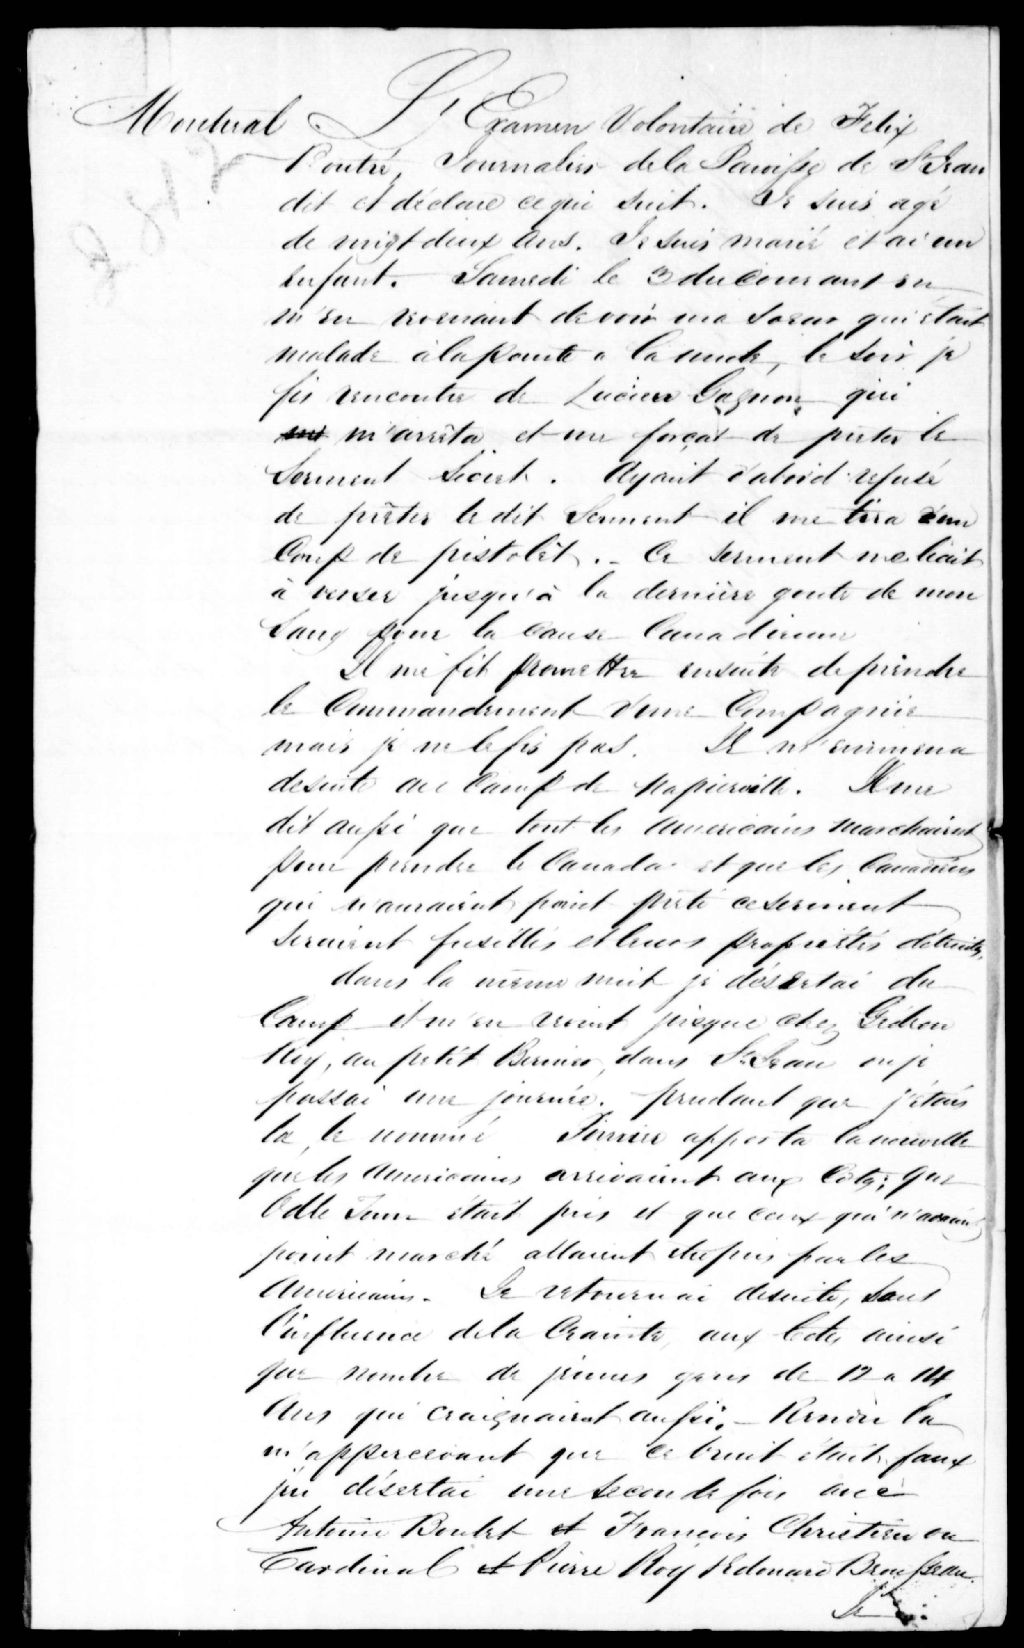 Montreal. L'Examen Volontaire de Felix
Poutré, Journalier de la Paroisse de St Jean
dit et déclare ce qui suit. Je suis agé
de vingt deux Ans. Je suis marié et ai un
enfant. Samedi le 3 du Courant en
m'en revenant de voir ma Soeur qui était
malade à la pointe a la mule, le soir je
fis rencontre de Lucien Gagnon qui
m'arrêta et me força de prêter le
Serment Sécret. Ayant d'abord refusé
de prêter le dit Serment il me tira d'un
Coup de pistolêt. - Ce serment me liait
à verser jusqu'à la dernière goute de mon
Sang pour la Cause Canadienne
Il me fit promettre ensuite de prendre
le Commandement d'une Compagnie
mais je ne le fis pas. Il m'emmena
desuite au Camp de Napierville. Il me
dit aussi que tout les Americains marchaient
pour prendre le Canada et que les Canadiens
qui n'auraient point prêté ce serment
seraient fusillés et leurs propriétés détruites,
dans la même nuit je désertai du
Camp et m'en vint jusque chez Gédéon
Roy, au petit Bernier, dans St Jean ou je
passai une journée. pendant que j'étais
la, le nommé apporta la nouvelle
que les Americains arrivaient aux Cotes; que
Odle Town était pris et que ceux qui n'avaient
point marché allaient être pris par les
Americains. Je retournai desuite, sous
l'influence de la Crainte, aux Cotes ainsi
que nombre de jeunes gens de 12 a 14
Ans qui craignaient aussi. - Rendu la
m'appercevant que ce bruit était faux
j'en désertai une seconde fois avec
Antoine Boulet et François Chrétien ou
Cardinal et Pierre Roy & Edouard Brousseau.
Je